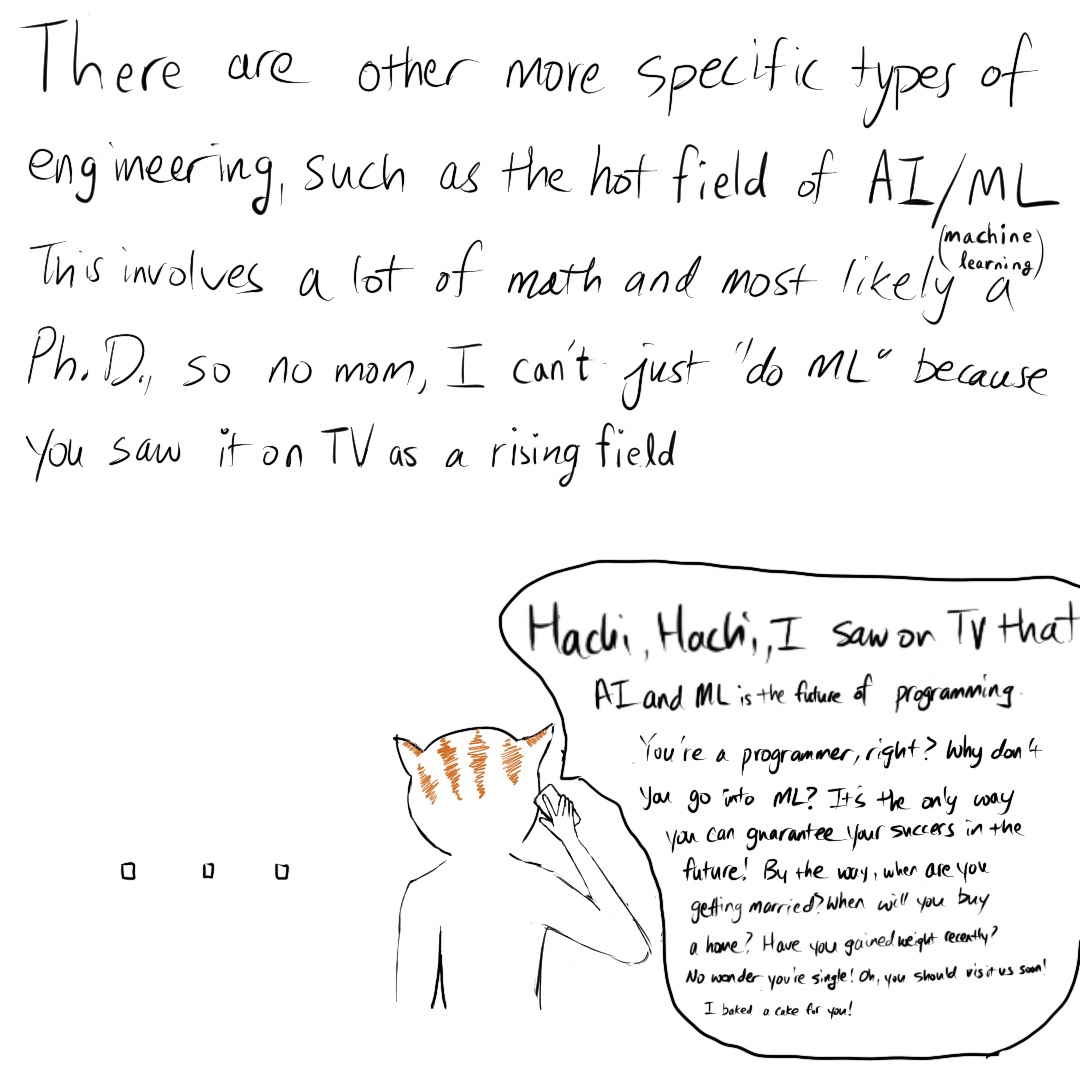 There are other more specific types of
engineering, such as the hot field of AI/ML
(machine
learning)
This involves a lot of math and most likely a
Ph.D., so no mom, I can't just "do ML" because
you saw it on TV as a rising field
Hachi, Hachi, I saw on TV that
AI and ML is the future of programming.
You're a programmer, right? Why don't
you go into ML? It's the only way
you can guarantee your success in the
future! By the way, when are you
getting married? When will you buy
a home? Have you gained weight recently?
No wonder you're single! Oh, you should visit us soon!
I baked a cake for you!